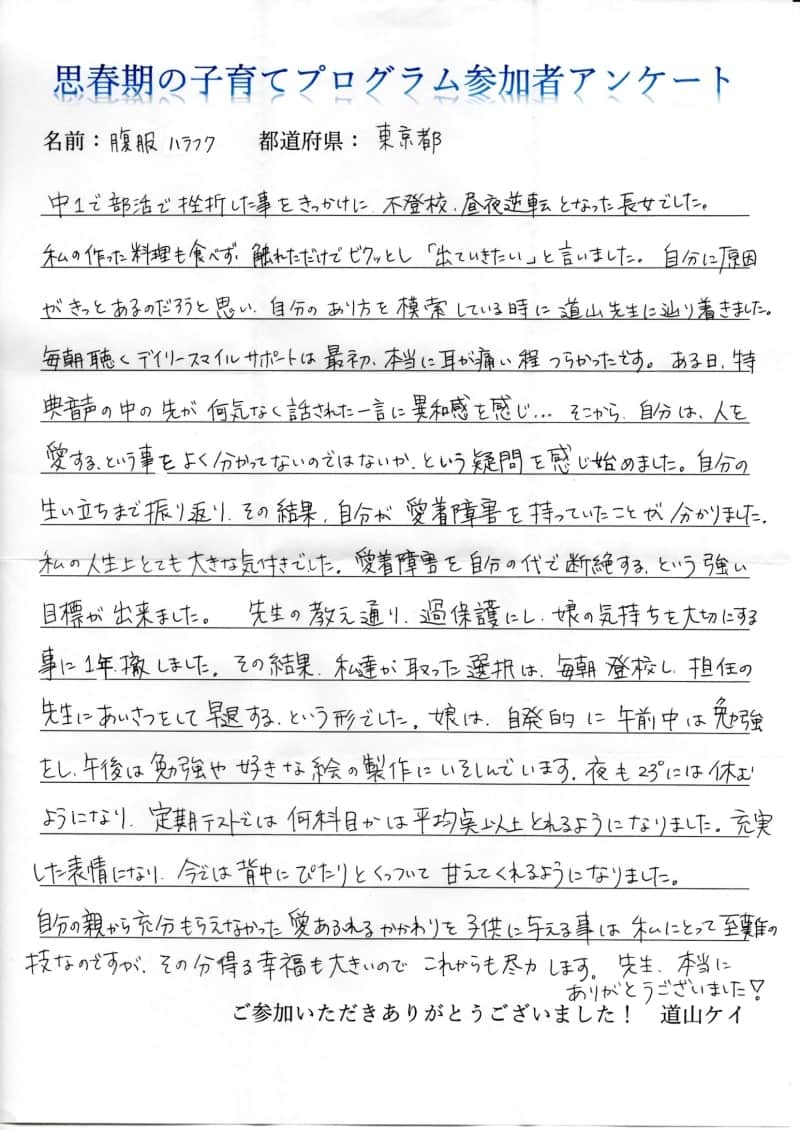 思春期の子育てプログラム参加者アンケート
名前：腹服 ハラフク 都道府県： 東京都
中1で部活で挫折した事をきっかけに、不登校、昼夜逆転となった長女でした。
私の作った料理も食べず、触れただけでビクッとし「出ていきたい」と言いました。 自分に原因
がきっとあるのだろうと思い、自分のあり方を模索している時に道山先生に辿り着きました。
毎朝聴くデイリースマイルサポートは最初、本当に耳が痛い程つらかったです。ある日、特
典音声の中の先が何気なく話された一言に異和感を感じ… そこから、自分は、人を
愛する、という事をよく分かってないのではないか、という疑問を感じ始めました。自分の
生い立ちまで振り返り、その結果、自分が愛着障害を持っていたことが、分かりました。
私の人生上とても大きな気付きでした。愛着障害を自分の代で断絶する、という強い
目標が出来ました。 先生の教え通り、過保護にし、娘の気持ちを大切にする
事に1年、撤しました。その結果、私達が取った選択は、毎朝登校し、担任の
先生にあいさつをして早退する、という形でした。娘は、自発的に午前中は勉強
をし、午後は勉強や好きな絵の製作にいそしんでいます。夜も23°には休む
ようになり、定期テストでは何科目かは平均点以上とれるようになりました。充実
した表情になり、今では背中にぴたりとくっついて甘えてくれるようになりました。
自分の親から充分もらえなかった愛あふれるかかわりを子供に与える事は私にとって至難の
技なのですが、その分得る幸福も大きいのでこれからも尽力します。先生、本当に
ありがとうございました♡
ご参加いただきありがとうございました！ 道山ケイ